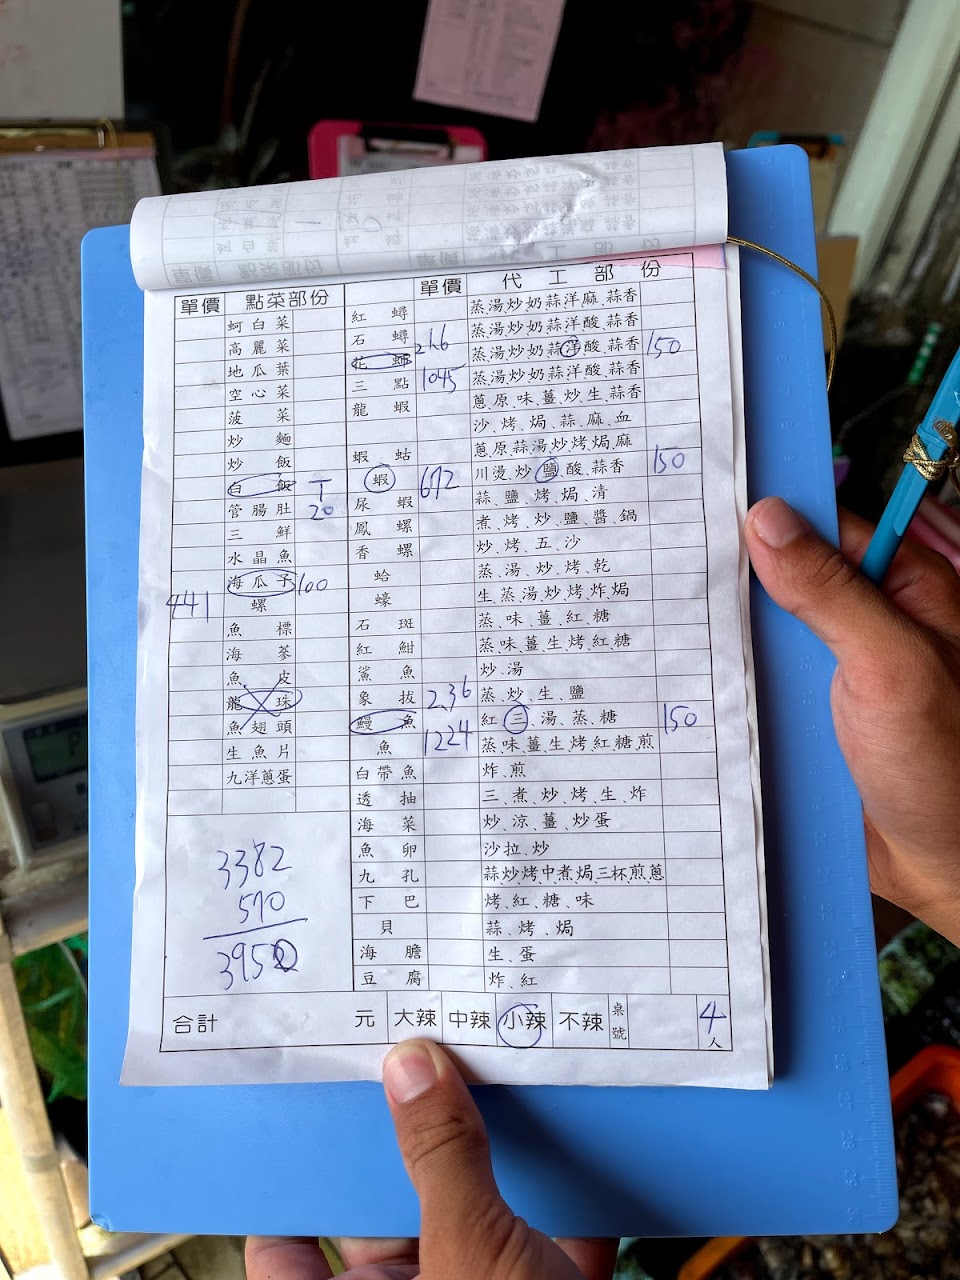 單價 點菜部份 單價 代工部份
蚵白菜
高麗菜
地瓜葉
空心菜
菠菜
炒麵
炒飯
白飯 T
管腸肚 20
三鮮
水晶魚
海瓜子 100
441 螺
魚標
海參
魚皮
龍珠
魚翅頭
生魚片
九洋蔥蛋
紅蟳 蒸、湯、炒、奶、蒜、洋、麻、蒜香
石蟳 蒸、湯、炒、奶、蒜、洋、酸、蒜香
花 蒸、湯、炒、奶、蒜、洋、酸、蒜香 150
三點 1045 蒸、湯、炒、奶、蒜、洋、酸、蒜香
龍蝦 蔥、原、味、薑、炒、生、蒜香
沙、烤、焗、蒜、麻、血
蝦蛄 蔥、原、蒜、湯、炒、烤、焗、麻
蝦 672 川燙、炒、鹽、酸、蒜香 150
尿蝦 蒜、鹽、烤、焗、清
鳳螺 煮、烤、炒、鹽、醬、鍋
香螺 炒、烤、五、沙
蛤 蒸、湯、炒、烤、乾
蠔 生、蒸、湯、炒、烤、炸、焗
石斑 蒸、味、薑、紅、糖
紅魽 蒸、味、薑、生、烤、紅、糖
鯊魚 炒、湯
象拔 2.36 蒸、炒、生、鹽
鰻魚 紅、三、湯、蒸、糖 150
魚 1224 蒸、味、薑、生、烤、紅、糖、煎
白帶魚 炸、煎
透抽 三、煮、炒、烤、生、炸
海菜 炒、涼、薑、炒蛋
魚卵 沙拉、炒
九孔 蒜、炒、烤、中、煮、焗、三杯、煎、蔥
下巴 烤、紅、糖、味
貝 蒜、烤、焗
海膽 生、蛋
豆腐 炸、紅
3382
570
3952
合計 元 大辣 中辣 小辣 不辣 桌號 4人